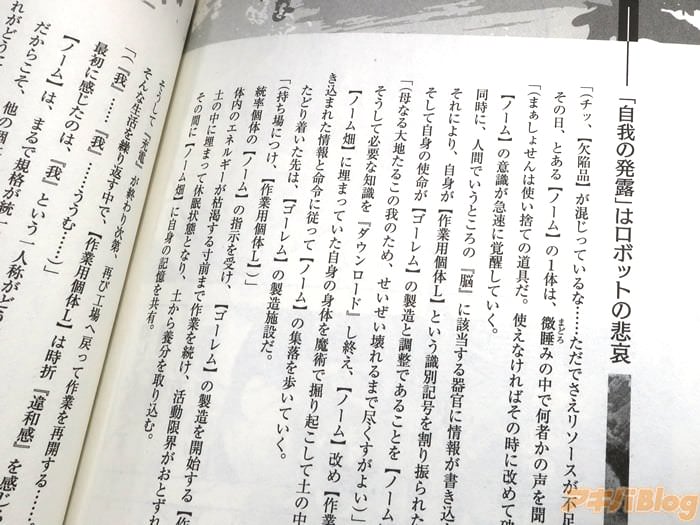 「自我の発露」はロボットの悲哀
「（チッ、【欠陥品】が混じっているな……ただでさえリソースが不足
その日、とある【ノーム】の１体は、微睡みの中で何者かの声を聞
まどろ
「（まぁしょせんは使い捨ての道具だ。使えなければその時に改めて
【ノーム】の意識が急速に覚醒していく。
同時に、人間でいうところの『脳』に該当する器官に情報が書き込
それにより、自身が【作業用個体Ｉ】という識別記号を割り振られた
そして自身の使命が【ゴーレム】の製造と調整であることを【ノー
「（母なる大地たるこの我のため、せいぜい壊れるまで尽くすがよい）」
そうして必要な知識を『ダウンロード』し終え、【ノーム】改め【作業
【ノーム畑】に埋まっていた自身の身体を魔術で掘り起こして土の中
き込まれた情報と命令に従って【ノーム】の集落を歩いていく。
たどり着いた先は、【ゴーレム】の製造施設だ。
「（持ち場につけ、【作業用個体Ｉ】）」
統率個体の【ノーム】の指示を受け、【ゴーレム】の製造を開始する【作
体内のエネルギーが枯渇する寸前まで作業を続け、活動限界がおとずれ
土の中に埋まって休眠状態となり、土から養分を取り込む。
その間に【ノーム畑】に自身の記憶を共有。
そうして『充電』が終わり次第、再び工場へ戻って作業を再開する……
そんな生活を繰り返す中で、【作業用個体Ｉ】は時折『違和感』を感じ
「（『我』……『我』……ううむ……）」
最初に感じたのは、『我』という一人称がどう
【ノーム】は、まるで規格が統
だからこそ、他の個
れがどうに
アキバBlog